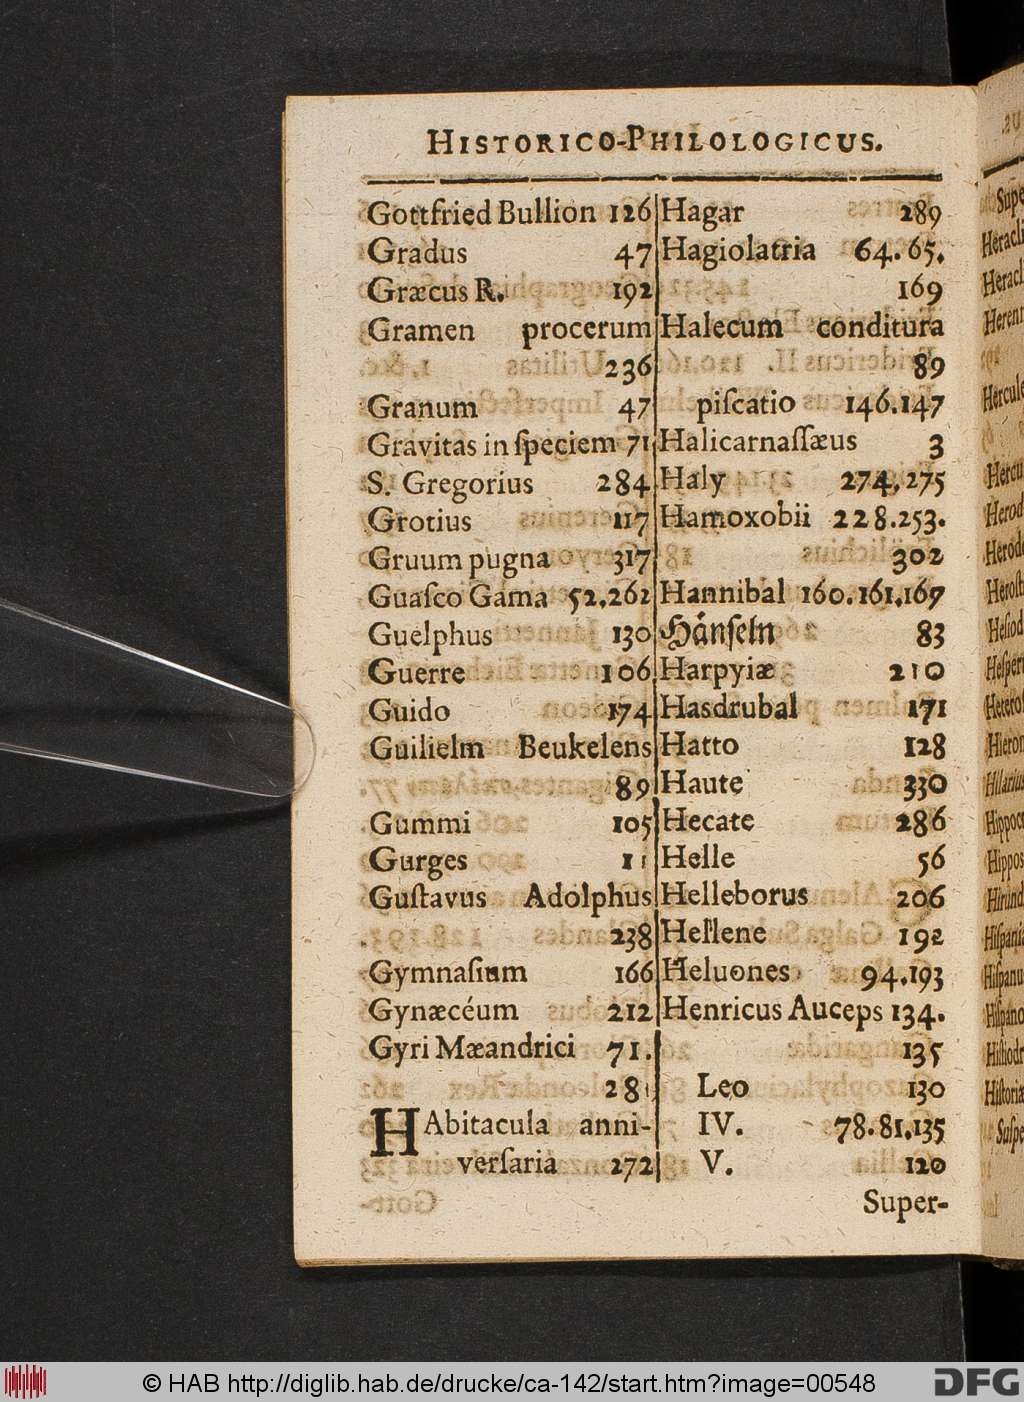 HISTORICO-PHILOLOGICUS.
Gottfried Bullion 126
Gradus 47
Græcus R. 192
Gramen procerum
236
Granum 47
Gravitas in ſpeciem 71
S. Gregorius 284
Grotius 117
Gruum pugna 317
Guaſco Gama 52.262
Guelphus 130
Guerre 106
Guido 174
Guilielm Beukelens
89
Gummi 105
Gurges 11
Guſtavus Adolphus
238
Gymnaſium 166
Gynæcéum 212
Gyri Mæandrici 71.
281
HAbitacula anni-
verſaria 272
Hagar 289
Hagiolatria 64.65.
169
Halecum conditura
89
piſcatio 146.147
Halicarnaſſæus 3
Haly 274.275
Hamoxobii 228.253.
302
Hannibal 160.161.167
Hånſeln 83
Harpyiæ 210
Hasdrubal 171
Hatto 128
Haute 330
Hecate 286
Helle 56
Helleborus 206
Hellene 192
Heluones 94.193
Henricus Auceps 134.
135
Leo 130
IV. 78.81.135
V. 120
Super-
© HAB http://diglib.hab.de/drucke/ca-142/start.htm?image=00548
DFG